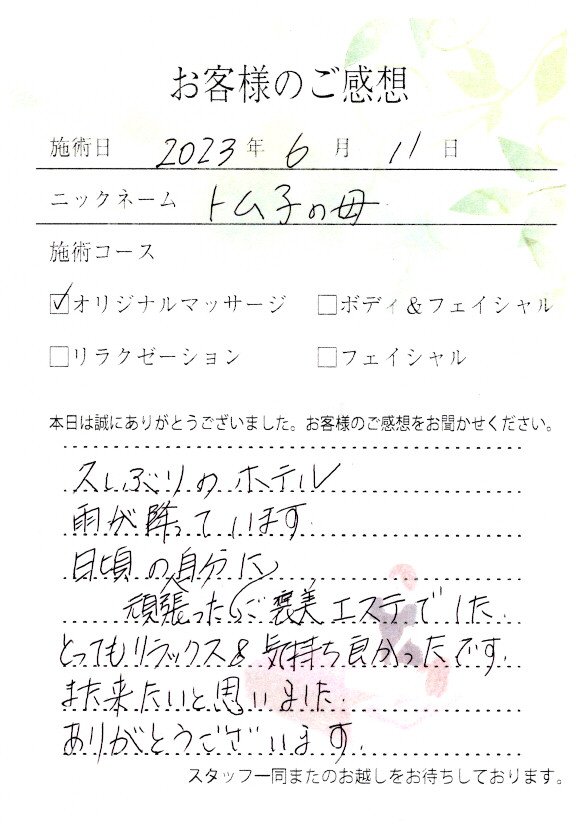 お客様のご感想
施術日 2023年 6月 11日
ニックネーム トム子の母
施術コース
☑オリジナルマッサージ □ボディ&フェイシャル
□リラクゼーション □フェイシャル
本日は誠にありがとうございました。お客様のご感想をお聞かせください。
久しぶりのホテル
雨が降っています
日頃の自分に
頑張ったご褒美エステでした
とってもリラックス&気持ち良かったです
また来たいと思いました
ありがとうございます
スタッフ一同またのお越しをお待ちしております。